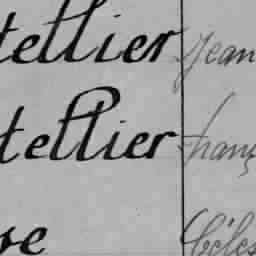 tellier Jean
tellier franç
re Céles